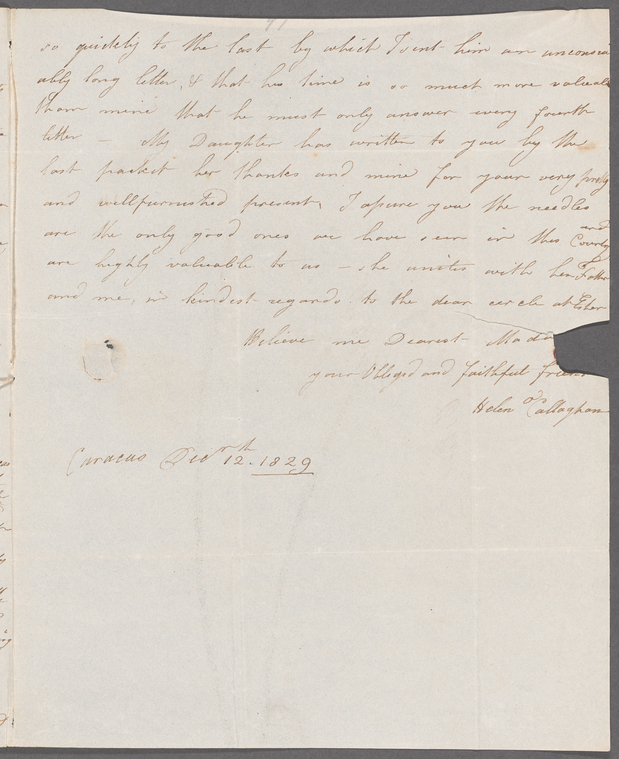 so quickly to the last by which I sent him an unconsci
ably long letter, & that his time is so much more valuab
than mine that he must only answer every fourth
letter — My Daughter has written to you by the
last packet her thanks and mine for your very pretty
and wellfurnished present, I assure you the needles
are the only good ones we have seen in this Country and
are highly valuable to us — she unites with her Father
and me, in kindest regards to the dear circle at
Believe me Dearest Mada
your Obliged and faithful friend
Helen O'Callaghan
Caracas Decr 12th 1829